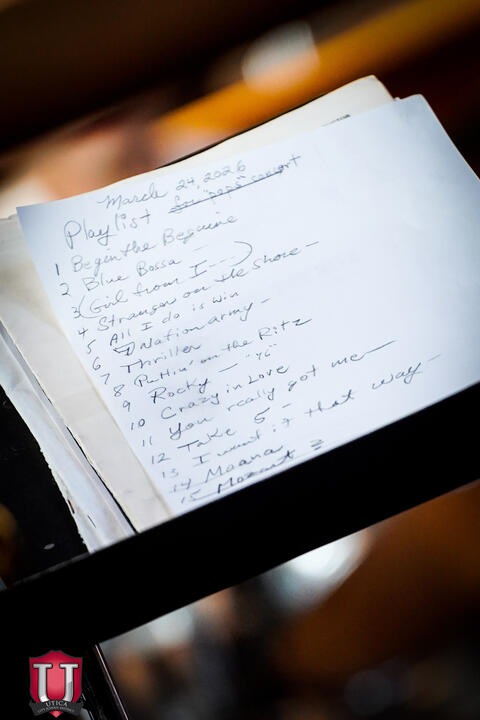 March 24, 2026
Playlist for "pops" concert
1 Begin the Beguine
2 Blue Bossa -
3 (Girl from I---)
4 Stranger on the Shore -
5 All I do is win
6 7 Nation army -
7 Thriller
8 Puttin' on the Ritz
9 Rocky - "46"
10 Crazy in Love
11 You really got me -
12 Take 5 -
13 I want it that way -
14 Moana
15 Mozart
U
UTICA